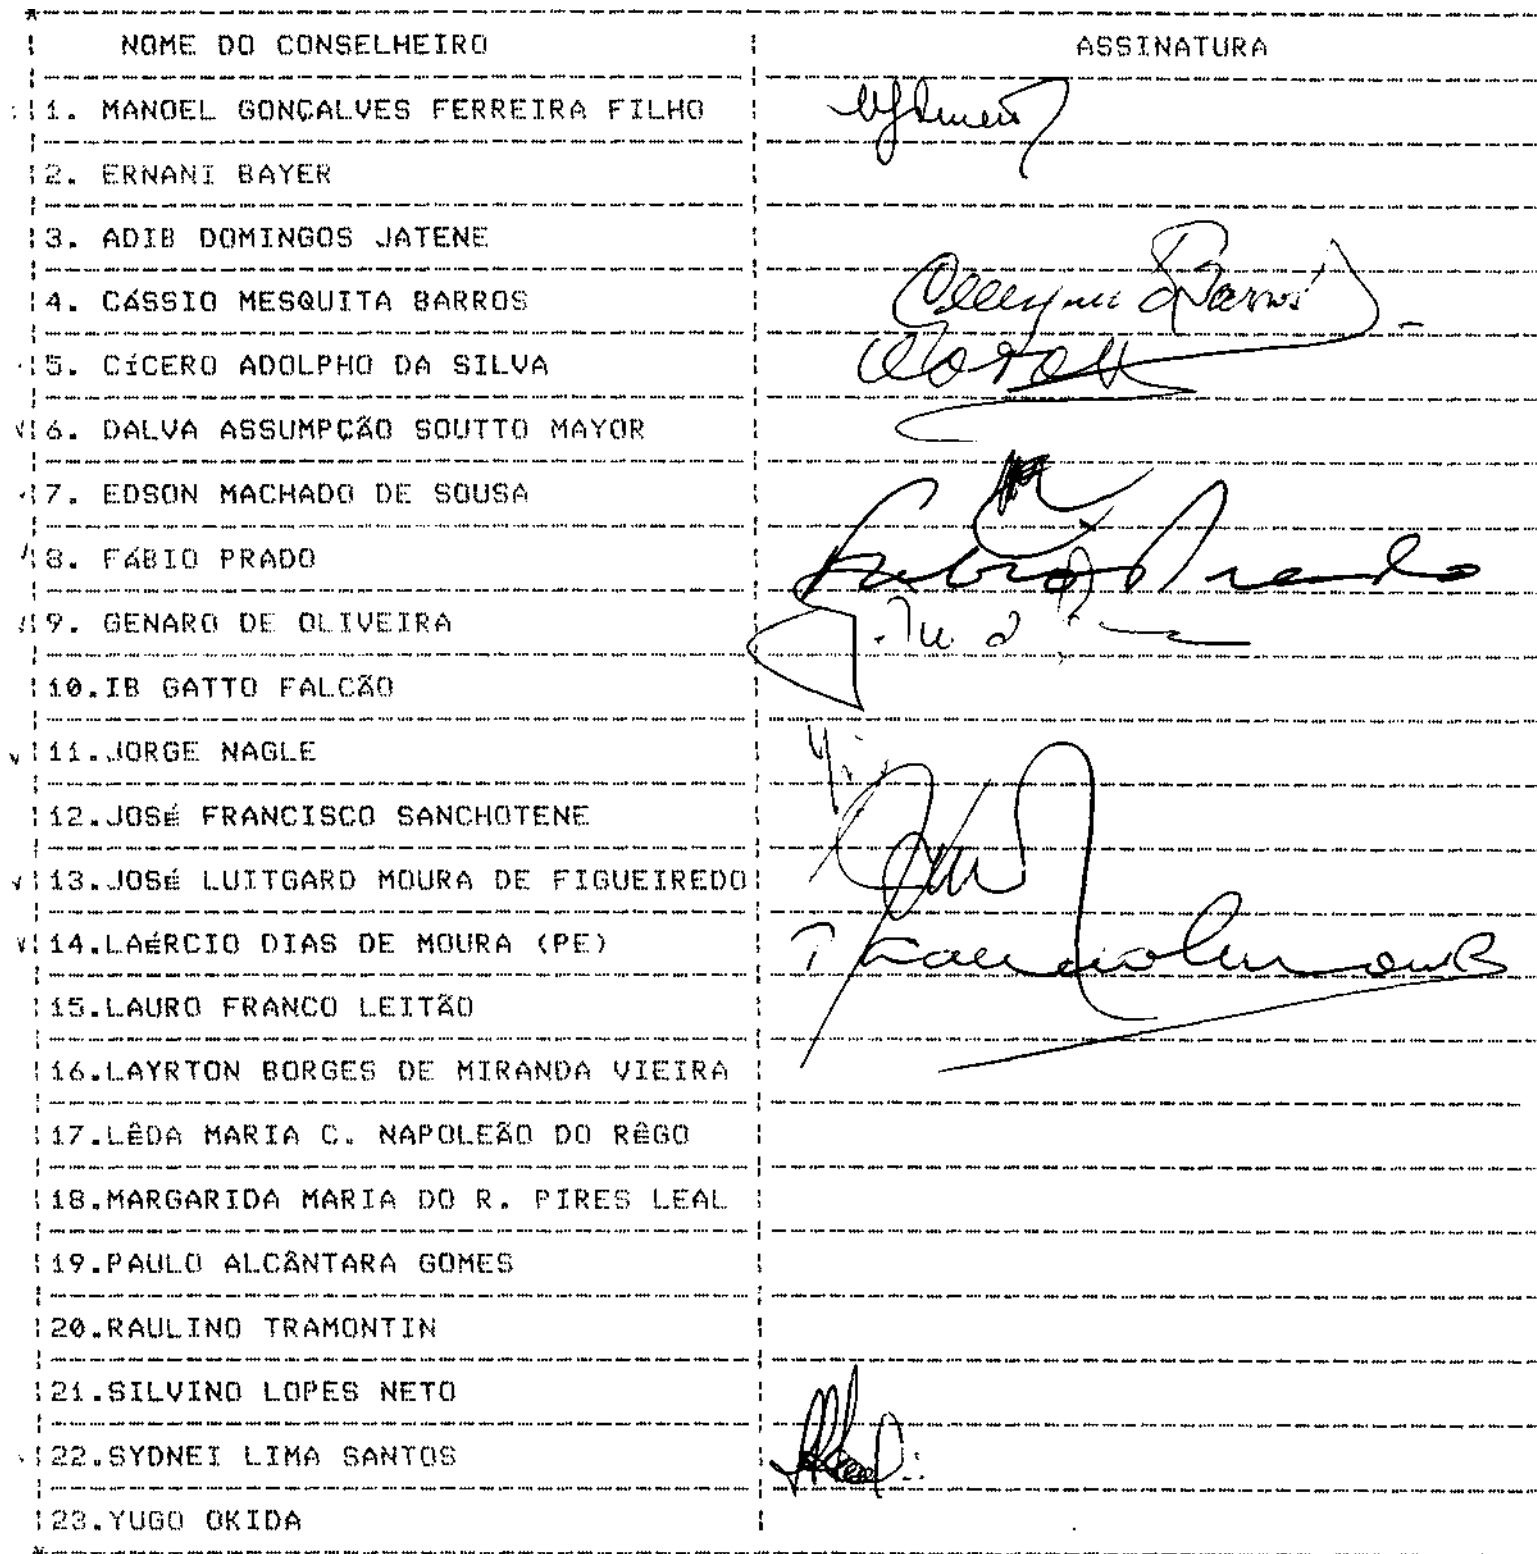 NOME DO CONSELHEIRO ASSINATURA
1. MANOEL GONÇALVES FERREIRA FILHO
2. ERNANI BAYER
3. ADIB DOMINGOS JATENE
4. CÁSSIO MESQUITA BARROS Barros
5. CÍCERO ADOLPHO DA SILVA
6. DALVA ASSUMPÇÃO SOUTTO MAYOR
7. EDSON MACHADO DE SOUSA
8. FÁBIO PRADO Fabio Prado
9. GENARO DE OLIVEIRA
10.IB GATTO FALCÃO
11.JORGE NAGLE
12.JOSÉ FRANCISCO SANCHOTENE
13.JOSÉ LUITGARD MOURA DE FIGUEIREDO
14.LAÉRCIO DIAS DE MOURA (PE)
15.LAURO FRANCO LEITÃO
16.LAYRTON BORGES DE MIRANDA VIEIRA
17.LÊDA MARIA C. NAPOLEÃO DO RÊGO
18.MARGARIDA MARIA DO R. PIRES LEAL
19.PAULO ALCÂNTARA GOMES
20.RAULINO TRAMONTIN
21.SILVINO LOPES NETO
22.SYDNEI LIMA SANTOS
23.YUGO OKIDA